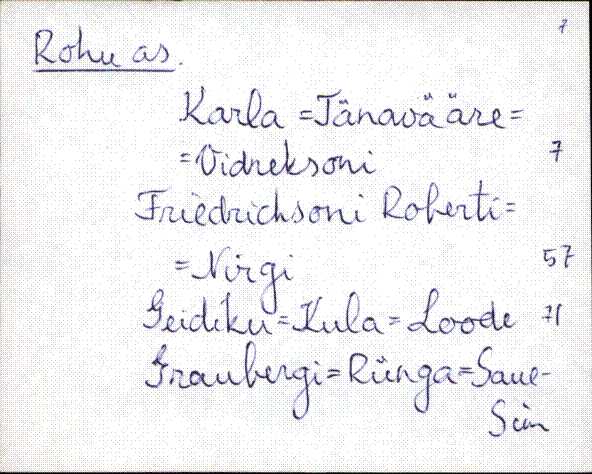 1
Rohu as.
Karla = Tänavääre =
= Vidreksoni 7
Friedrichsoni Roberti =
= Nirgi 57
Geidiku = Kula = Loode 71
Graubergi = Rünga = Saue-